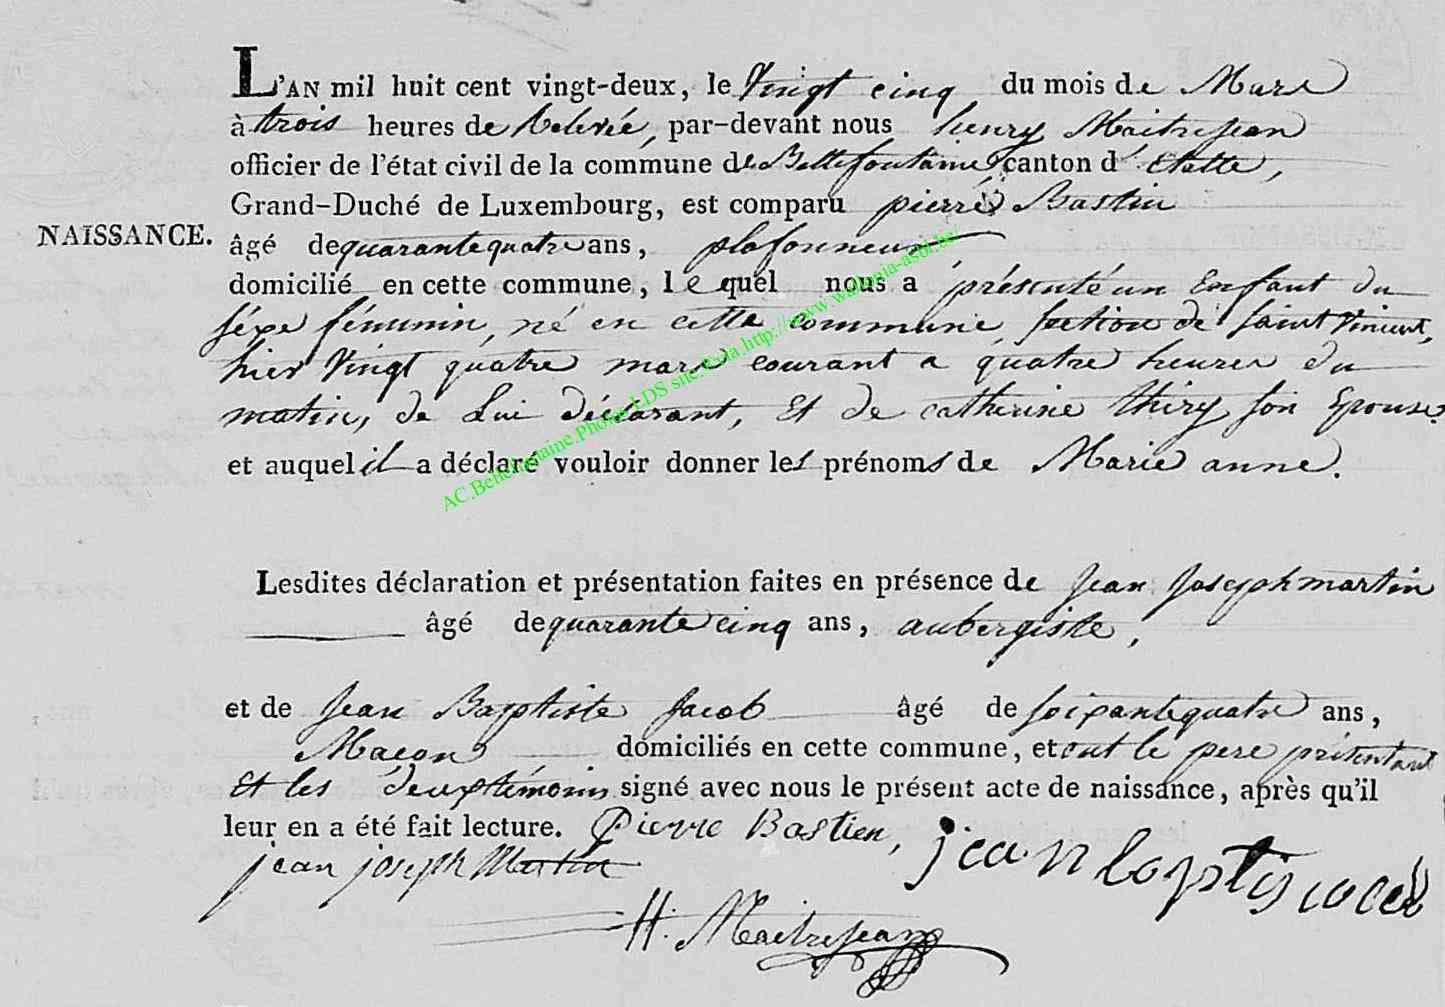 L'AN mil huit cent vingt-deux, le Vingt cinq du mois de Mars
à trois heures de Relevée, par-devant nous henry Maitrejean
officier de l'état civil de la commune de Bellefontaine, canton d' Etalle,
Grand-Duché de Luxembourg, est comparu pierre Bastin
NAISSANCE.
âgé de quarante quatre ans, plafonneur
domicilié en cette commune, lequel nous a présenté un Enfant du
séxe féminin, né en cette commune, section de saint Vincent,
hier Vingt quatre mars courant a quatre heures du
matin, de Lui déclarant, Et de catherine thiry son Epouse.
et auquel il a déclaré vouloir donner les prénoms de Marie anne.
AC.Bellefontaine.Photos LDS snc. Asla.http://www.wallonia-asbl.be/
Lesdites déclaration et présentation faites en présence de Jean Joseph martin
âgé de quarante cinq ans, aubergiste,
et de Jean Baptiste Jacob âgé de soixante quatre ans,
Maçon domiciliés en cette commune, et ont le pere présentant
Et les deux témoins signé avec nous le présent acte de naissance, après qu'il
leur en a été fait lecture. Pierre Bastien,
jean joseph Martin
H. Maitrejean